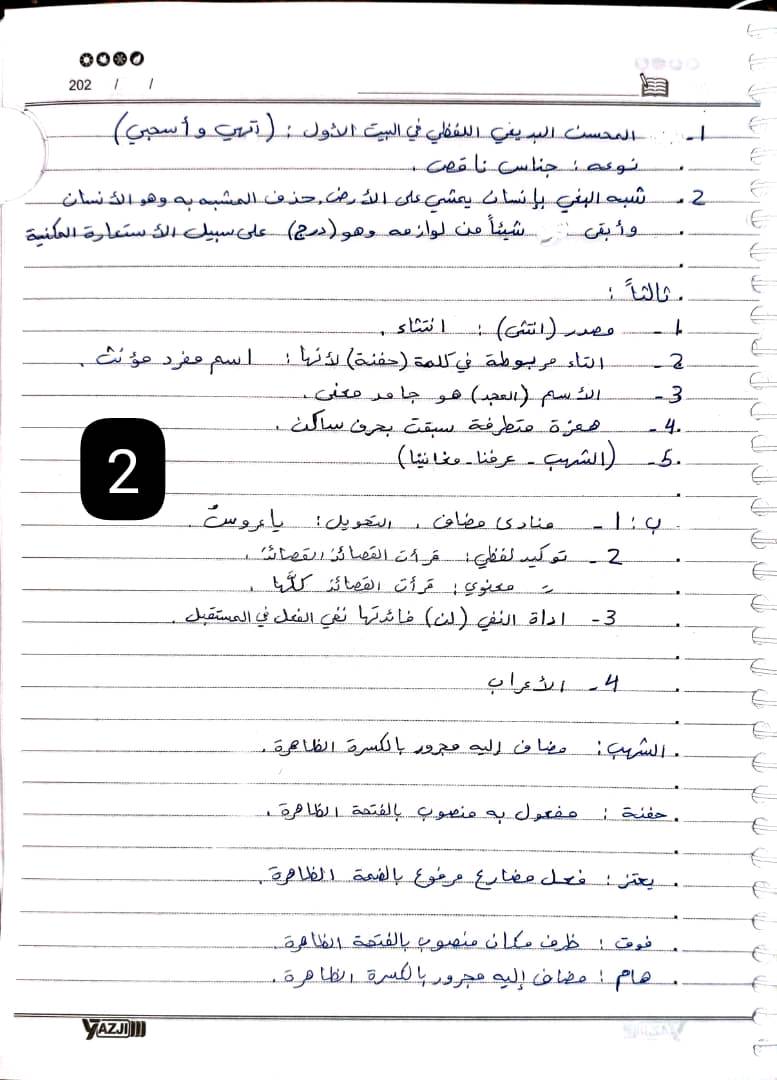 202 / /
1- المحسن البديعي اللفظي في البيت الأول : (اتهي و أسحبي)
نوعه : جناس ناقص .
2- شبه البغي بإنسان يمشي على الأرض، حذف المشبه به وهو الأنسان
وأبقى شيئاً من لوازمه وهو (درج) على سبيل الأستعارة المكنية
ثالثاً :
1- مصدر (انتثى) : انتثاء .
2- التاء مربوطة في كلمة (حفنة) لأنها : اسم مفرد مؤنث .
3- الأسم (المجد) هو جامد معنى .
4- همزة متطرفة سبقت بحرف ساكن .
5- (الشهب - عرفنا - مغانينا)
2
ب : 1- منادى مضاف ، التحويل : يا عروسُ .
2- توكيد لفظي : قرأت القصائدَ القصائدَ .
= معنوي : قرأت القصائد كلَّها .
3- اداة النفي (لن) فائدتها نفي الفعل في المستقبل .
4- الأعراب
الشهب : مضاف إليه مجرور بالكسرة الظاهرة .
حفنة : مفعول به منصوب بالفتحة الظاهرة .
يعتز : فعل مضارع مرفوع بالضمة الظاهرة .
فوق : ظرف مكان منصوب بالفتحة الظاهرة .
هام : مضاف إليه مجرور بالكسرة الظاهرة .
YAZJI